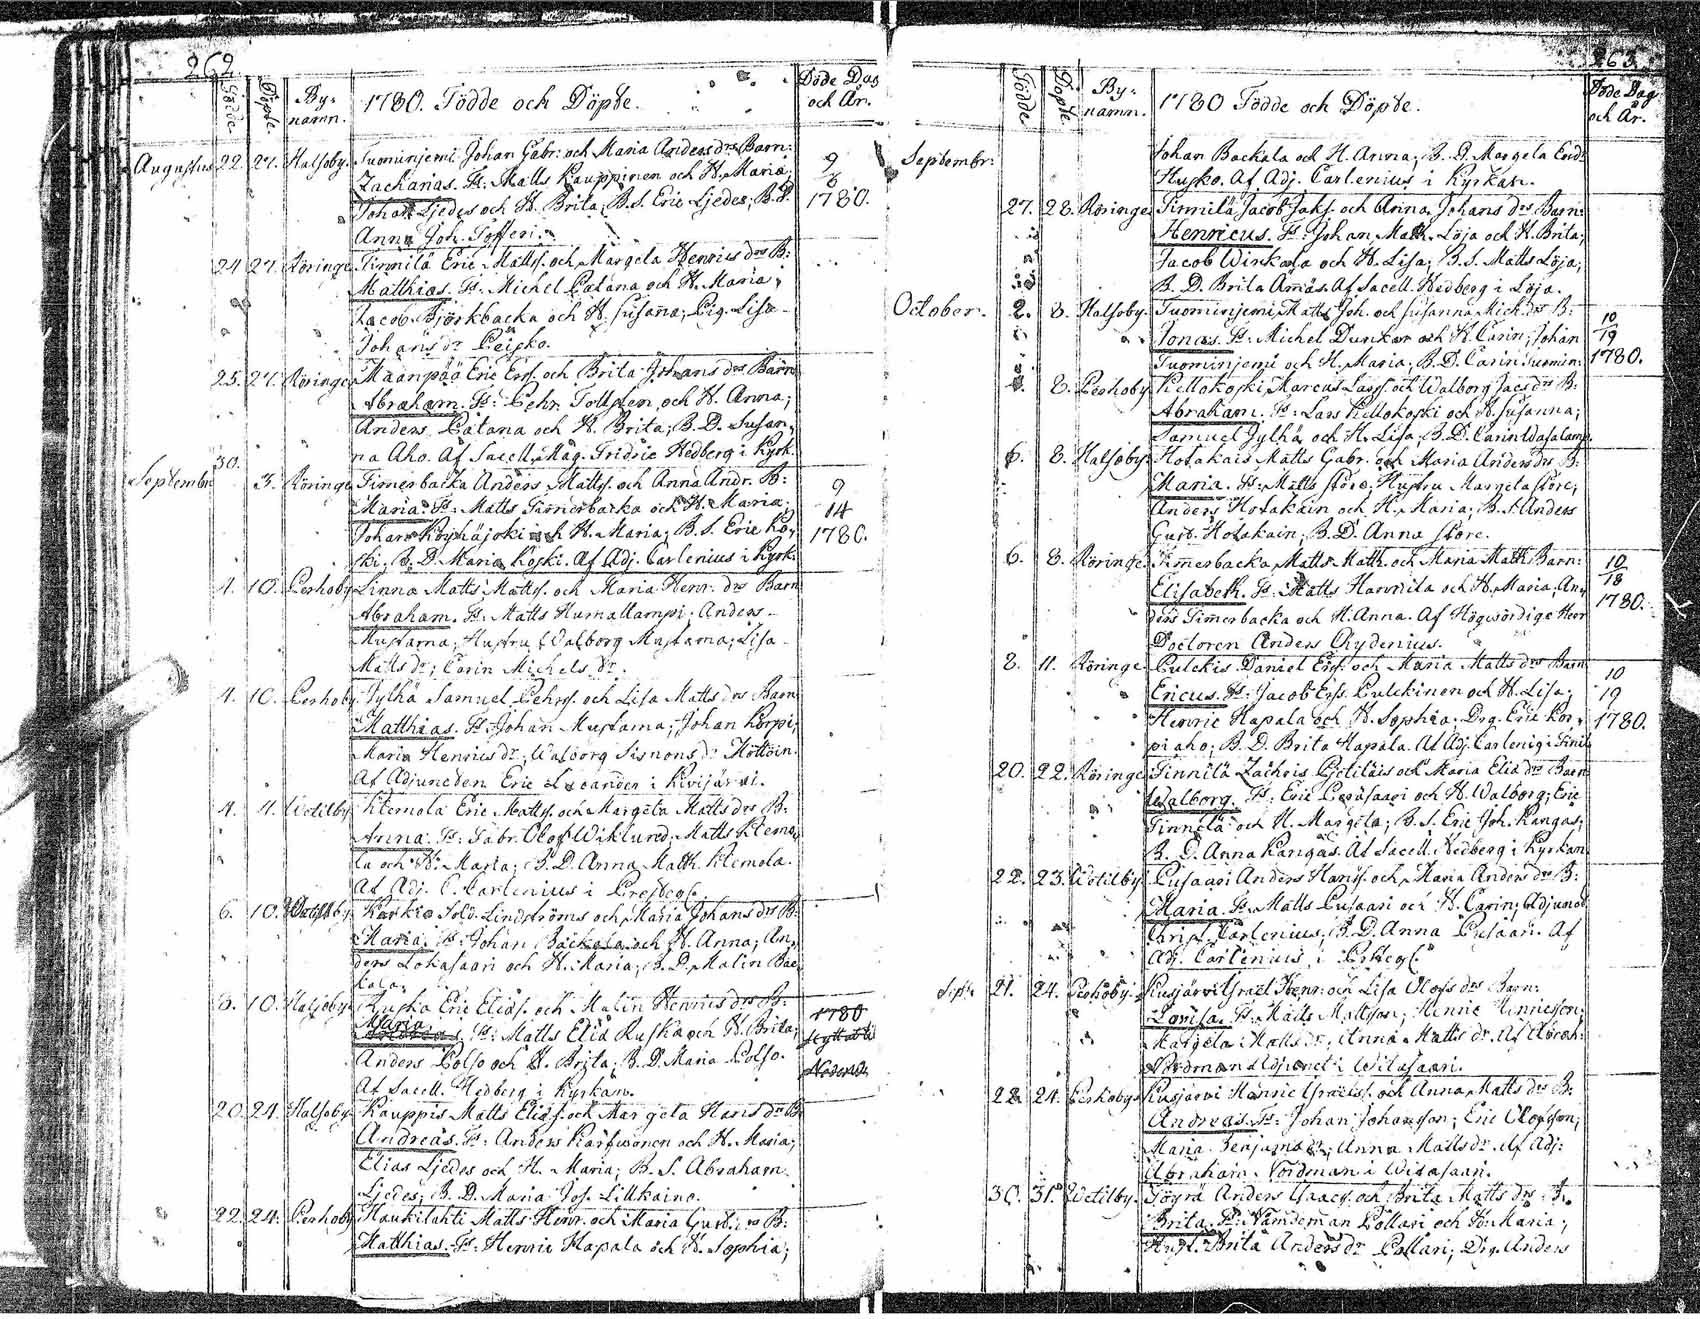 262
Födde
Döpte
By-
namn.
1780. Födde och Döpte.
Döde Dag
och År.
Augustus 22. 27. Halsoby. Tuominjemi Johan Gabr: och Maria Anders drs Barn:
Zacharias. Ts: Matts Kauppinen och H. Maria;
Johan Ljedes och H. Brita; B.S. Eric Ljedes; B.D.
Anna Joh. Tofferi.
9
6
1780.
24 27. Röringe Tinnilä Eric Mattss. och Margeta Henrics drs B:
Matthias. Ts: Michel Patana och H. Maria;
Jacob Björkbacka och H. Susanna; Pig. Lisa
Johans dr Peisko.
25. 27. Röringe Maanpää Eric Erss. och Brita Johans drs Barn
Abraham. Ts: Pehr Tollsten och H. Anna;
Anders Patana och H. Brita; B.D. Susan-
na Aho. Af Sacell. Mag. Fridric Hedberg i Kyrk.
30.
Septembr. 3. Röringe Timerbacka Anders Mattss. och Anna Andr. B:
Maria. Ts: Matts Timerbacka och H. Maria;
Johan Köyhäjoki och H. Maria; B.S. Eric Ko-
ski; B.D. Maria Koski. Af Adj. Carlenius i Kyrk.
9
14
1780.
4. 10. Perhoby Linna Matts Mattss. och Maria Henr. drs Barn
Abraham. Ts: Matts Humallampi; Anders
Mustama; Hustru Walborg Mustama; Lisa
Matts dr; Carin Michels dr.
4. 10. Perhoby Jylhä Samuel Pehrss. och Lisa Matts drs Barn
Matthias. Ts: Johan Mustama; Johan Korpi;
Maria Henrics dr; Walborg Simons dr Höttöin.
Af Adjuncten Eric i Kivijärvi.
4. 4. Wetilby Klemola Eric Mattss. och Margeta Matts drs B:
Anna. Ts: Fabr. Olof Wiklund; Matts Klemo-
la och H. Maria; B.D. Anna Matth. Klemola.
Af Adj. C. Carlenius i
6. 10. Karkia Sold. Lindströms och Maria Johans drs B:
Maria. Ts: Johan Backala och H. Anna; An-
ders Lokasaari och H. Maria; B.D. Malin Bac-
kala.
8. 10. Halsoby Ruska Eric Eliæs. och Malin Henrics drs B:
Maria
Ts: Matts Eliæ Ruska och H. Brita;
Anders Polso och H. Brita; B.D. Maria Polso.
Af Sacell. Hedberg i Kyrkan.
1780
20. 24. Halsoby Kauppis Matts Eliæs. och Margeta Hans drs B:
Andreas. Ts: Anders Karfwonen och H. Maria;
Elias Ljedes och H. Maria; B.S. Abraham
Ljedes; B.D. Maria Jos. Lillkaino.
22. 24. Perhoby Haukilahti Matts Henr. och Maria Gust. drs B:
Matthias. Ts: Henric Hapala och H. Sophia;
263.
Födde
Döpte
By-
namn.
1780 Födde och Döpte.
Döde Dag
och År.
Septembr: Johan Backala och H. Anna; B.D. Margeta
Husko. Af Adj. Carlenius i Kyrkan.
27. 28. Röringe Tinnilä Jacob Jaks. och Anna Johans drs Barn:
Henricus. Ts: Johan Math. Löja och H. Brita;
Jacob Wirkala och H. Lisa; B.S. Matts Löja;
B.D. Brita Åmås. Af Sacell. Hedberg i Löja.
October. 2. 8. Halsoby. Tuominjemi Matts Joh. och Susanna Mich. drs B:
Jonas. Ts: Michel Dunkar och H. Carin; Johan
Tuominjemi och H. Maria; B.D. Carin Tuomin:
10
19
1780.
8. Perhoby Kellokoski Marcus Larss. och Walborg Jacs drs B:
Abraham. Ts: Lars Kellokoski och H. Susanna;
Samuel Jylhä och H. Lisa; B.D. Carin
6. 8. Halsoby. Hotakais Matts Gabr. och Maria Anders drs B:
Maria. Ts: Matts Store, Hustru Margeta Store;
Anders Hotakain och H. Maria; B.S. Anders
Gust. Hotakain; B.D. Anna Store.
6. 8. Röringe. Timerbacka Matts Math. och Maria Math. Barn:
Elisabeth. Ts: Matts Harmila och H. Maria; An-
ders Timerbacka och H. Anna. Af Högvördige Herr
Doctoren Anders Chydenius.
10
18
1780.
8. 11. Röringe Pulckis Daniel Erss. och Maria Matts drs Barn
Ericus. Ts: Jacob Erss. Pulckinen och H. Lisa;
Henric Hapala och H. Sophia; Drg. Eric Kor-
piaho; B.D. Brita Hapala. Af Adj. Carlenig i Tinil
10
19
1780.
20. 22. Röringe Tinnilä Zachris Pjetiläis och Maria Eliæ drs Barn
Walborg. Ts: Eric Pesusaari och H. Walborg; Eric
Tinnilä och H. Margeta; B.S. Eric Joh. Kangas;
B.D. Anna Kangas. Af Sacell. Hedberg i Kyrkan
22. 23. Wetilby Pusaari Anders Hanss. och Maria Anders drs B:
Maria. Ts: Matts Pusaari och H. Carin; Adjunct
Christ. Carlenius; B.D. Anna Pusaari. Af
Adj. Carlenius i
Sept. 21. 24. Perhoby. Kusjärvi Israel Henr: och Lisa Olofs drs Barn:
Lovisa. Ts: Matts Mattsson; Henric Henricsson;
Margeta Matts dr; Anna Matts dr. Af Abrah:
Nordman Adjunct i Witasaari.
22. 24. Perhoby Kusjarvi Henric Israelss. och Anna Matts drs B:
Andreas. Ts: Johan Johansson; Eric Olofsson;
Maria Benjams dr; Anna Matts dr. Af Adj:
Abraham Nordman i Witasaari.
30. 31. Wetilby. Töyrä Anders Isacss. och Brita Matts drs B.
Brita. Ts: Nämdeman Pollari och Hru Maria;
Hust. Brita Anders dr Pollari; Drg. Anders